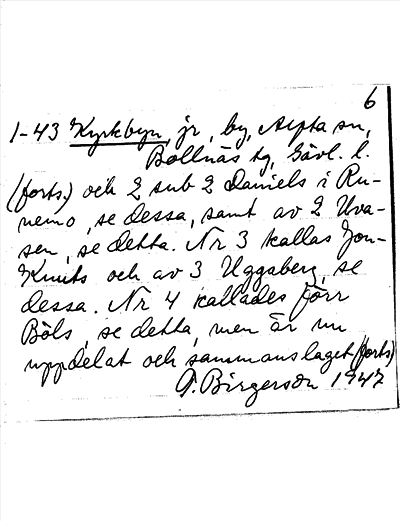 6
1-43 Kyrkbyn, jr, by, Alfta sn,
Bollnäs tg, Gävl. l.
(forts.) och 2 sub 2 Daniels i Ru-
nemo, se dessa, samt av 2 Uva-
sen, se detta. Nr 3 kallas Jon-
Knuts och av 3 Uggsberg, se
dessa. Nr 4 kallades förr
Böls, se detta, men är nu
uppdelat och sammanslaget (forts)
G. Birgerson 1947